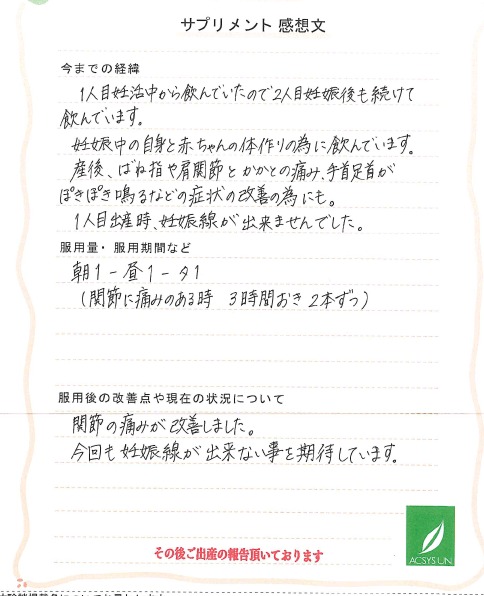 サプリメント 感想文
今までの経緯
1人目妊活中から飲んでいたので2人目妊娠後も続けて
飲んでいます。
妊娠中の自身と赤ちゃんの体作りの為に飲んでいます。
産後、ばね指や肩関節とかかとの痛み、手首足首が
ぽきぽき鳴るなどの症状の改善の為にも。
1人目出産時、妊娠線が出来ませんでした。
服用量・服用期間など
朝1-昼1-夕1
(関節に痛みのある時 3時間おき 2本ずつ)
服用後の改善点や現在の状況について
関節の痛みが改善しました。
今回も妊娠線が出来ない事を期待しています。
ACSYSUN
その後ご出産の報告頂いております